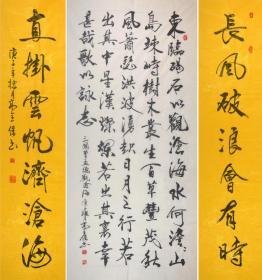 長風破浪會有時
東臨碣石以觀滄海水何澹澹山
島竦峙樹木叢生百草豐茂秋
風蕭瑟洪波湧起日月之行若
出其中星漢燦爛若出其裏幸
甚哉歌以詠志
直掛雲帆濟滄海